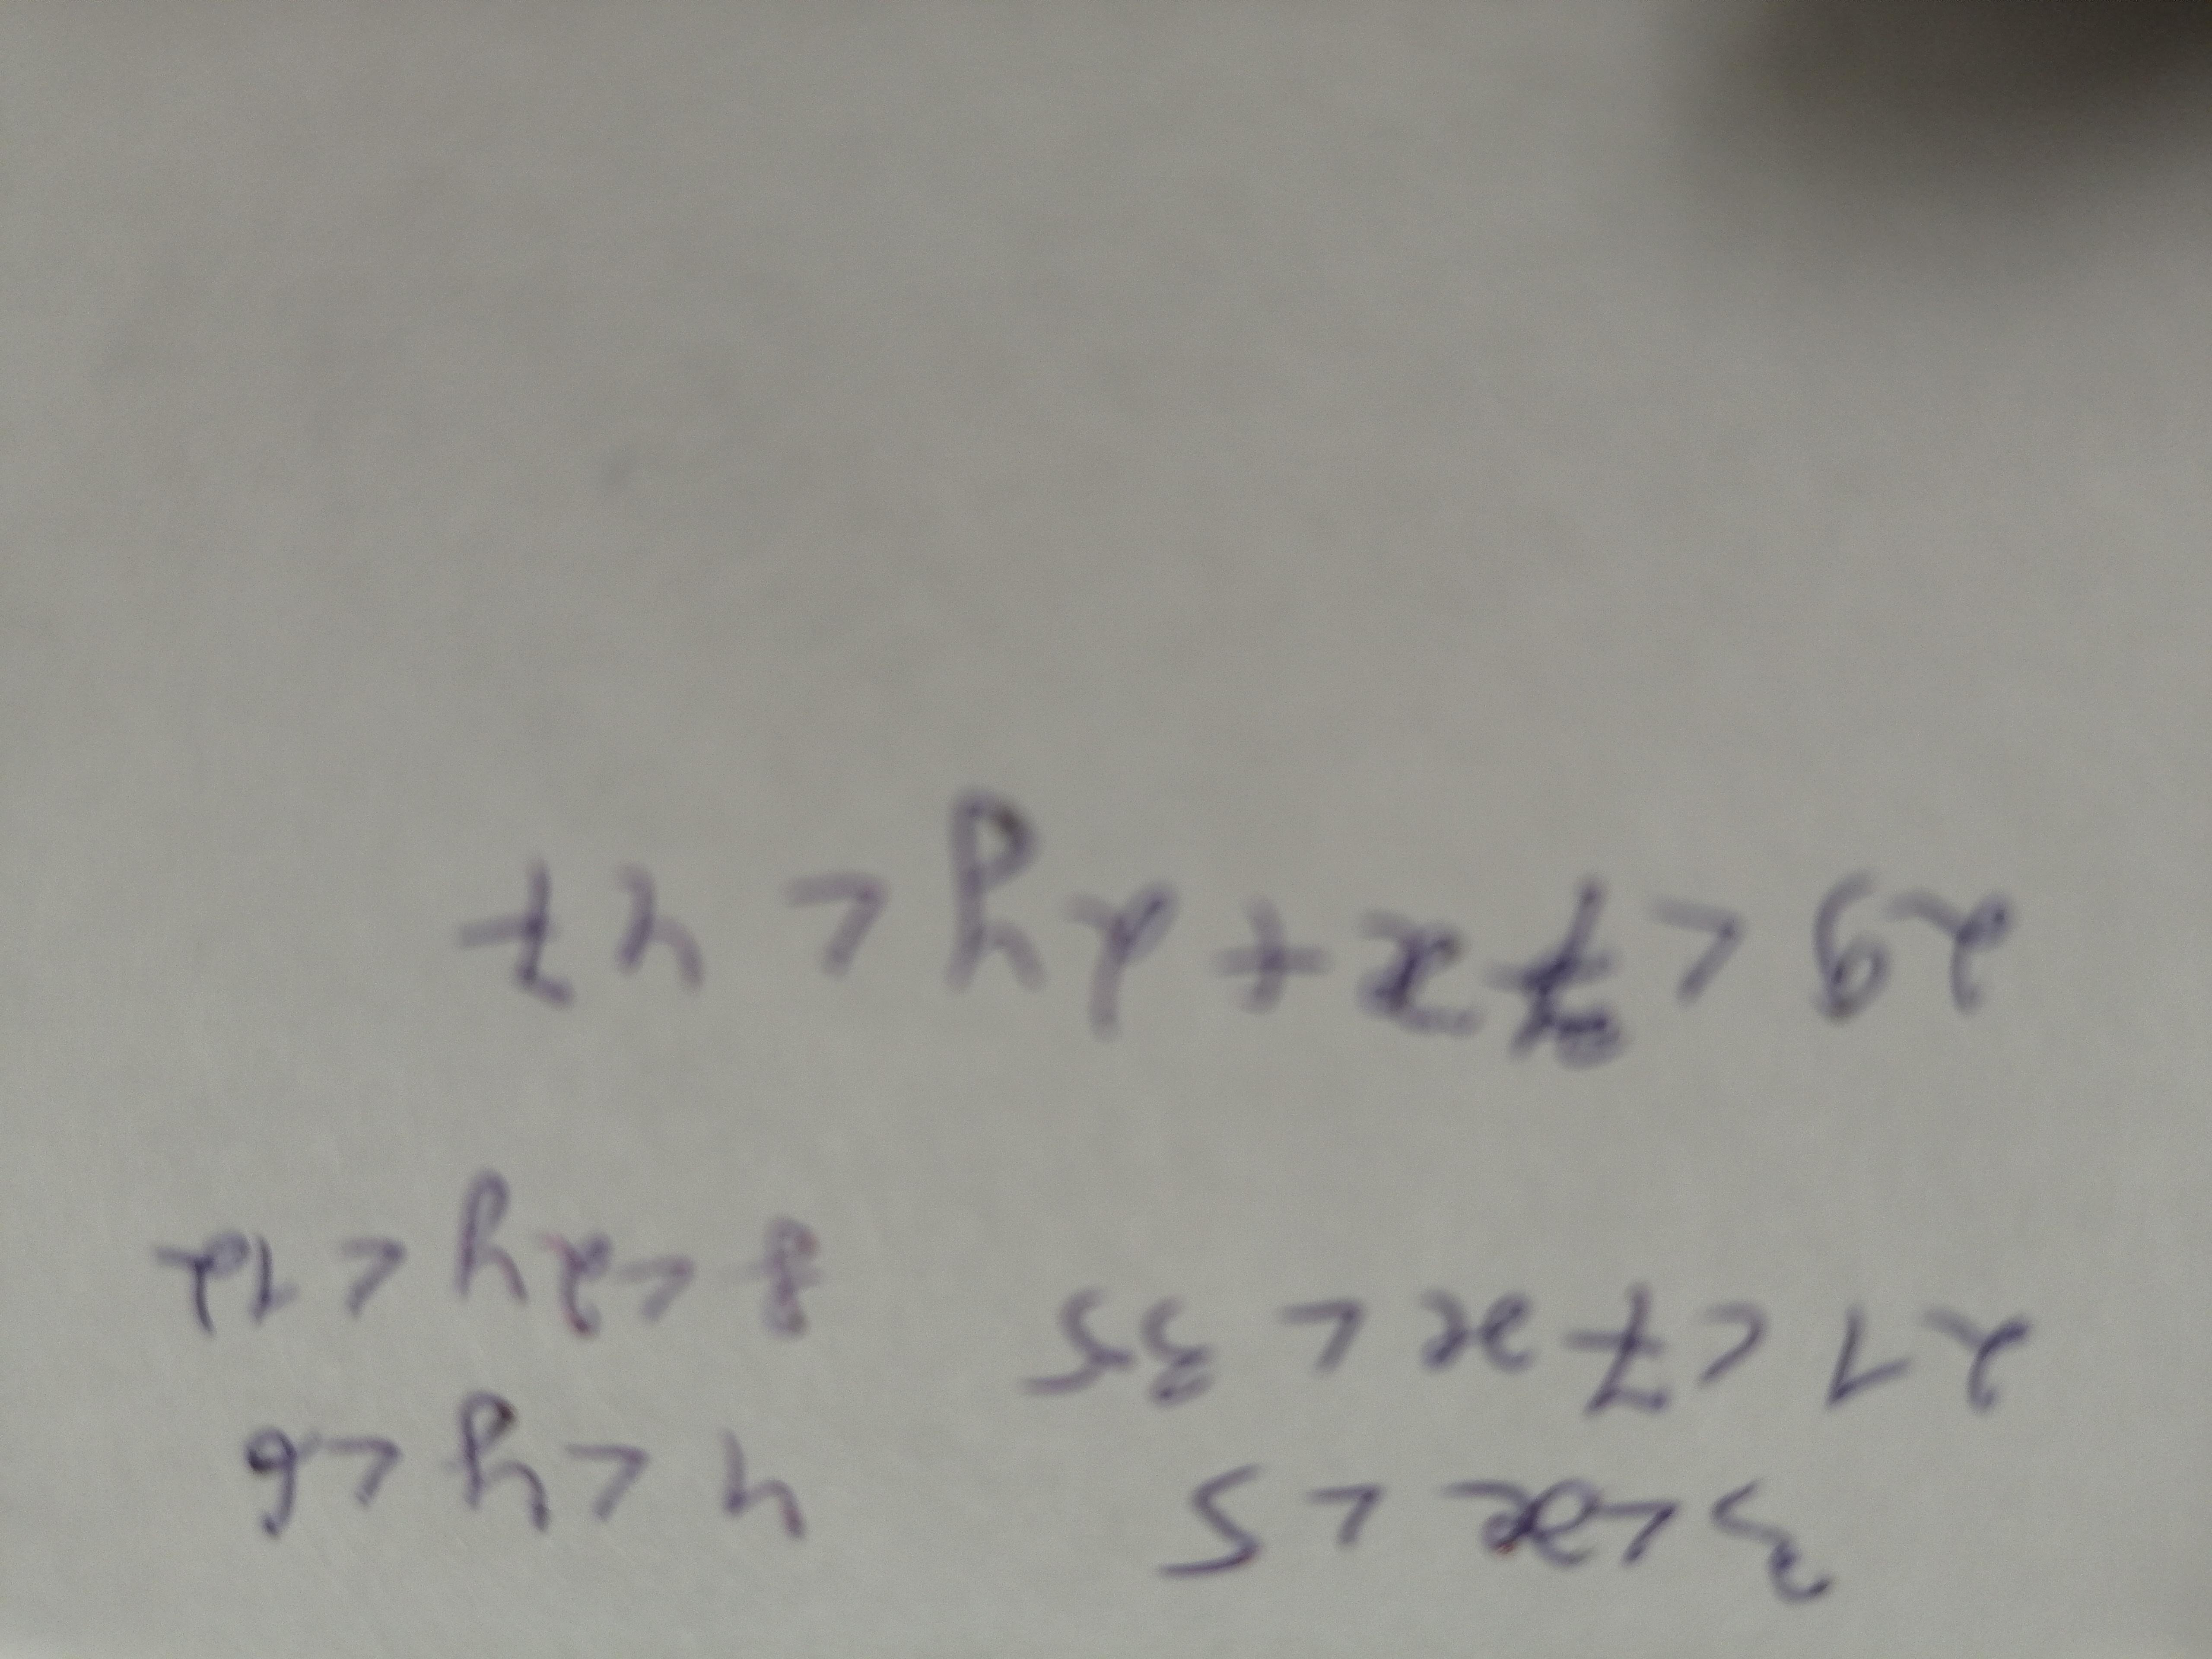 3<x<5 4<y<6
21<7x<35 8<2y<12
29<7x+2y<47